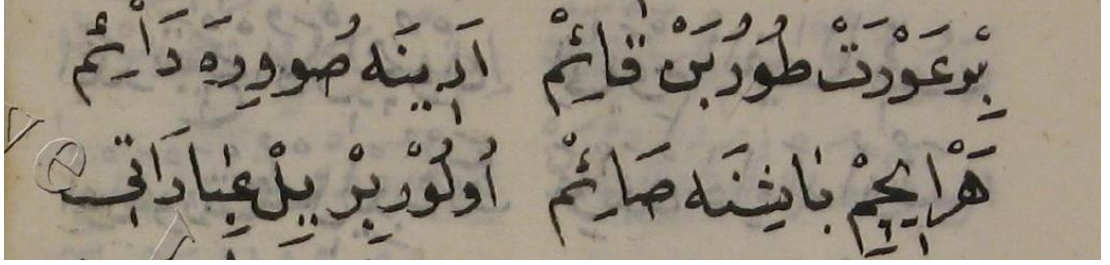 بِرْ عَوْرَتْ طُورُبَنْ قَائِمْ اَرِينَه صُووِرَه دَائِمْ
هَرْ اِيچِمْ بَاشِنَه صَائِمْ اُولُوْر بِرْ يِلْ عِبَادَاتِى